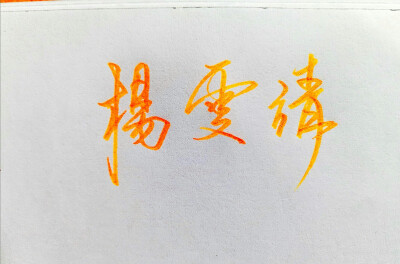 楊雯靖